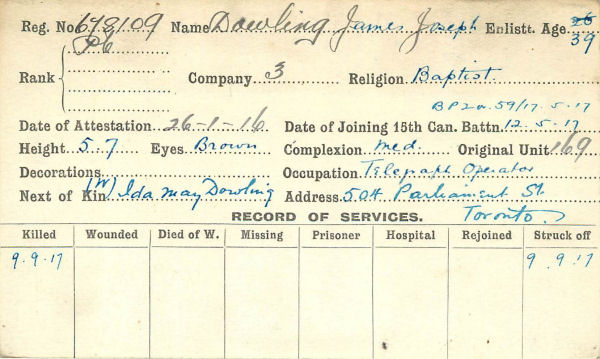 Reg. No. 678109 Name Dowling James Joseph Enlistt. Age 39
Pte
Rank Company 3 Religion Baptist.
BP2o 59/17-5-17
Date of Attestation 26-1-16 Date of Joining 15th Can. Battn. 12.5.17
Height 5.7 Eyes Brown Complexion med. Original Unit 169
Decorations Occupation Telegraph Operator
Next of Kin (W) Ida May Dowling Address 504 Parliament St.
Toronto
RECORD OF SERVICES.
Killed Wounded Died of W. Missing Prisoner Hospital Rejoined Struck off
9.9.17 9.9.17